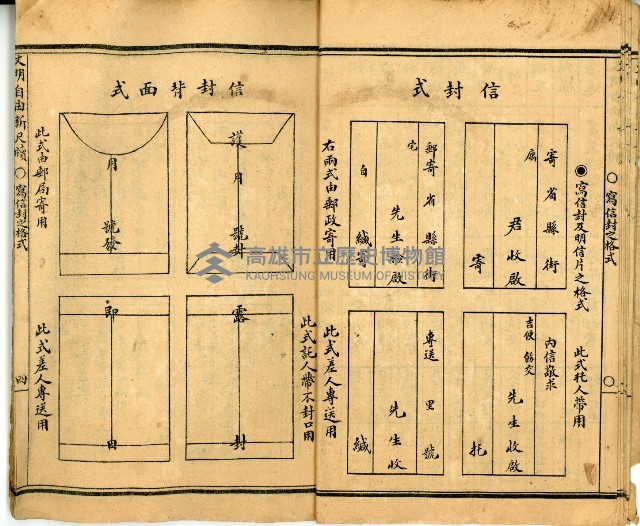 ○寫信封之格式
●寫信封及明信片之格式
信封式
寄省縣街
君收啟
寄
內信敬求
吉便
先生收啟
托
此式托人帶用
郵寄省縣街
宅
先生
啟
自
緘寄
右兩式由郵政寄用
專送
里
號
先生收
緘
此式差人專送用
信封背面式
謹
月
號封
露
封
此式託人帶不封口用
月
號發
即
日
此式由郵局寄用
此式差人專送用
文明自由新尺牘○寫信封之格式
四
高雄市立歷史博物館
KAOHSIUNG MUSEUM OF HISTORY